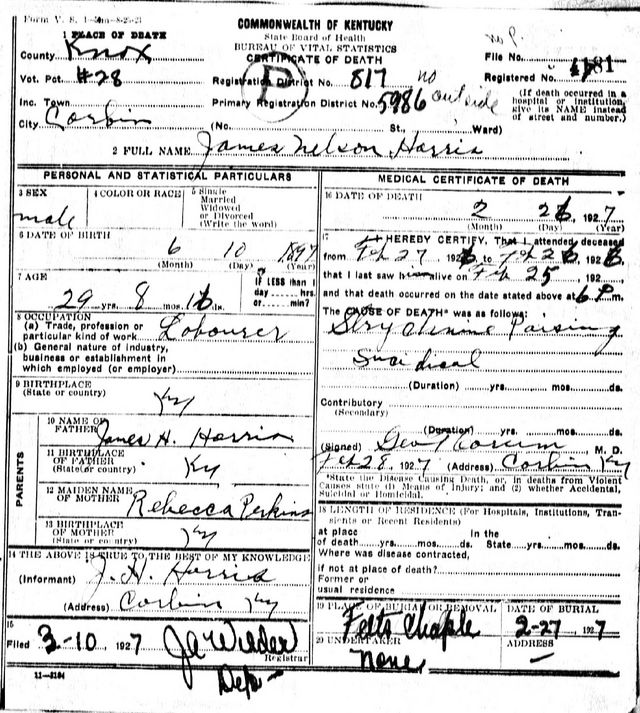 Form V. S. 1-50m-8-25-21
COMMONWEALTH OF KENTUCKY
State Board of Health
BUREAU OF VITAL STATISTICS
CERTIFICATE OF DEATH
1 PLACE OF DEATH
County Knox
Vot. Pct. #28
Inc. Town
City Corbin
P
Registration District No. 817 no
Primary Registration District No. 5986 outside
File No.
Registered No. 4181
(If death occurred in a hospital or institution, give its NAME instead of street and number.)
(No. St., Ward)
2 FULL NAME James Nelson Harris
PERSONAL AND STATISTICAL PARTICULARS
3 SEX male
4 COLOR OR RACE
5 Single Married Widowed or Divorced (Write the word)
6 DATE OF BIRTH
6 10 1897
(Month) (Day) (Year)
7 AGE
29 yrs. 8 mos. 16 ds.
IF LESS than 1 day ---- hrs. or ---- min?
8 OCCUPATION
(a) Trade, profession or particular kind of work Labourer
(b) General nature of industry, business or establishment in which employed (or employer)
9 BIRTHPLACE (State or country) Ky
PARENTS
10 NAME OF FATHER James H. Harris
11 BIRTHPLACE OF FATHER (State or country) Ky
12 MAIDEN NAME OF MOTHER Rebecca Perkins
13 BIRTHPLACE OF MOTHER (State or country) Ky
14 THE ABOVE IS TRUE TO THE BEST OF MY KNOWLEDGE
(Informant) J. H. Harris
(Address) Corbin Ky
15
Filed 3-10 1927 J A Wilder
Registrar
Dep-
11-3184
MEDICAL CERTIFICATE OF DEATH
16 DATE OF DEATH
2 26, 1927
(Month) (Day) (Year)
17 I HEREBY CERTIFY, That I attended deceased
from Feb 27 192 , to Feb 26 192 ,
that I last saw him alive on Feb 25 192 ,
and that death occurred on the date stated above at 6 P m.
The CAUSE OF DEATH* was as follows:
Strychnine Poising
Suicidical
(Duration) yrs. mos. ds.
Contributory
(Secondary)
(Duration) yrs. mos. ds.
(Signed) Corum M. D.
Feb 28, 1927 (Address) Corbin Ky
*State the Disease Causing Death, or, in deaths from Violent Causes state (1) Means of Injury; and (2) whether Accidental, Suicidal or Homicidal.
18 LENGTH OF RESIDENCE (For Hospitals, Institutions, Transients or Recent Residents)
at place of death yrs. mos. ds. In the State yrs. mos. ds.
Where was disease contracted,
if not at place of death?
Former or usual residence
19 PLACE OF BURIAL OR REMOVAL Felts Chaple
DATE OF BURIAL 2-27, 1927
20 UNDERTAKER None
ADDRESS –